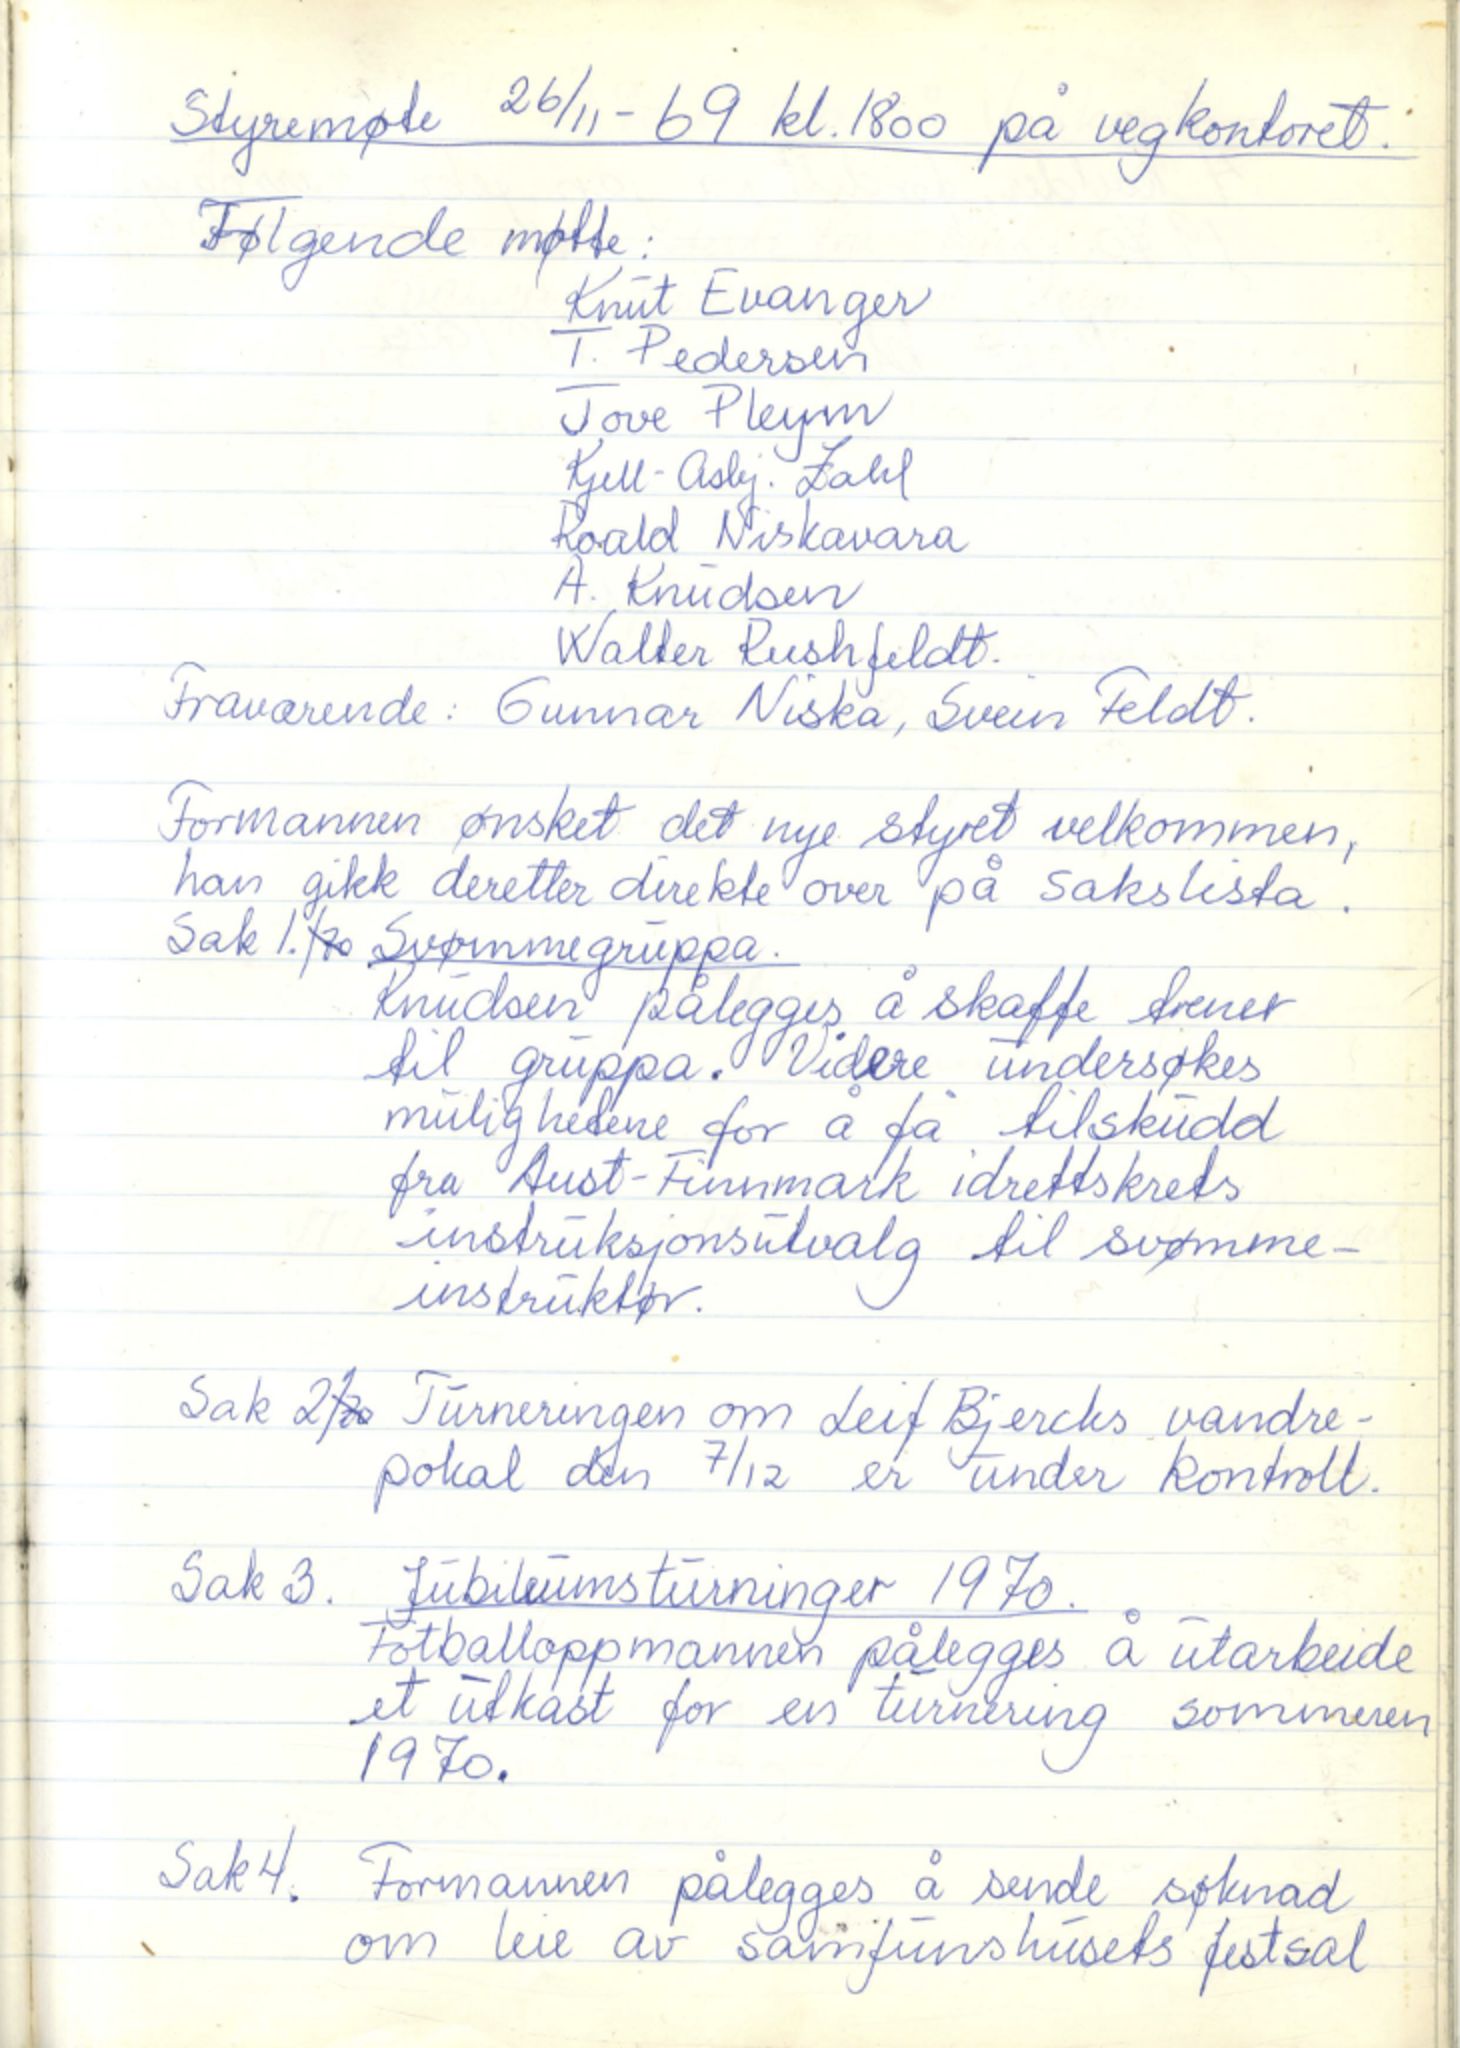 Styremøte 26/11-69 kl. 1800 på vegkontoret.
Følgende møtte:
Knut Evanger
T. Pedersen
Tove Pleym
Kjell-Asbj. Zahl
Roald Niskavara
A. Knudsen
Walter Rushfeldt.
Fraværende: Gunnar Niska, Svein Feldt.
Formannen ønsket det nye styret velkommen,
han gikk deretter direkte over på sakslista.
Sak 1./70 Svømmegruppa.
Knudsen pålegges å skaffe trener
til gruppa. Videre undersøkes
mulighetene for å få tilskudd
fra Aust-Finnmark idrettskrets
instruksjonsutvalg til svømme-
instruktør.
Sak 2/70 Turneringen om Leif Bjercks vandre-
pokal den 7/12 er under kontroll.
Sak 3. Jubileumsturninger 1970.
Fotballoppmannen pålegges å utarbeide
et utkast for en turnering sommeren
1970.
Sak 4. Formannen pålegges å sende søknad
om leie av samfunshusets festsal